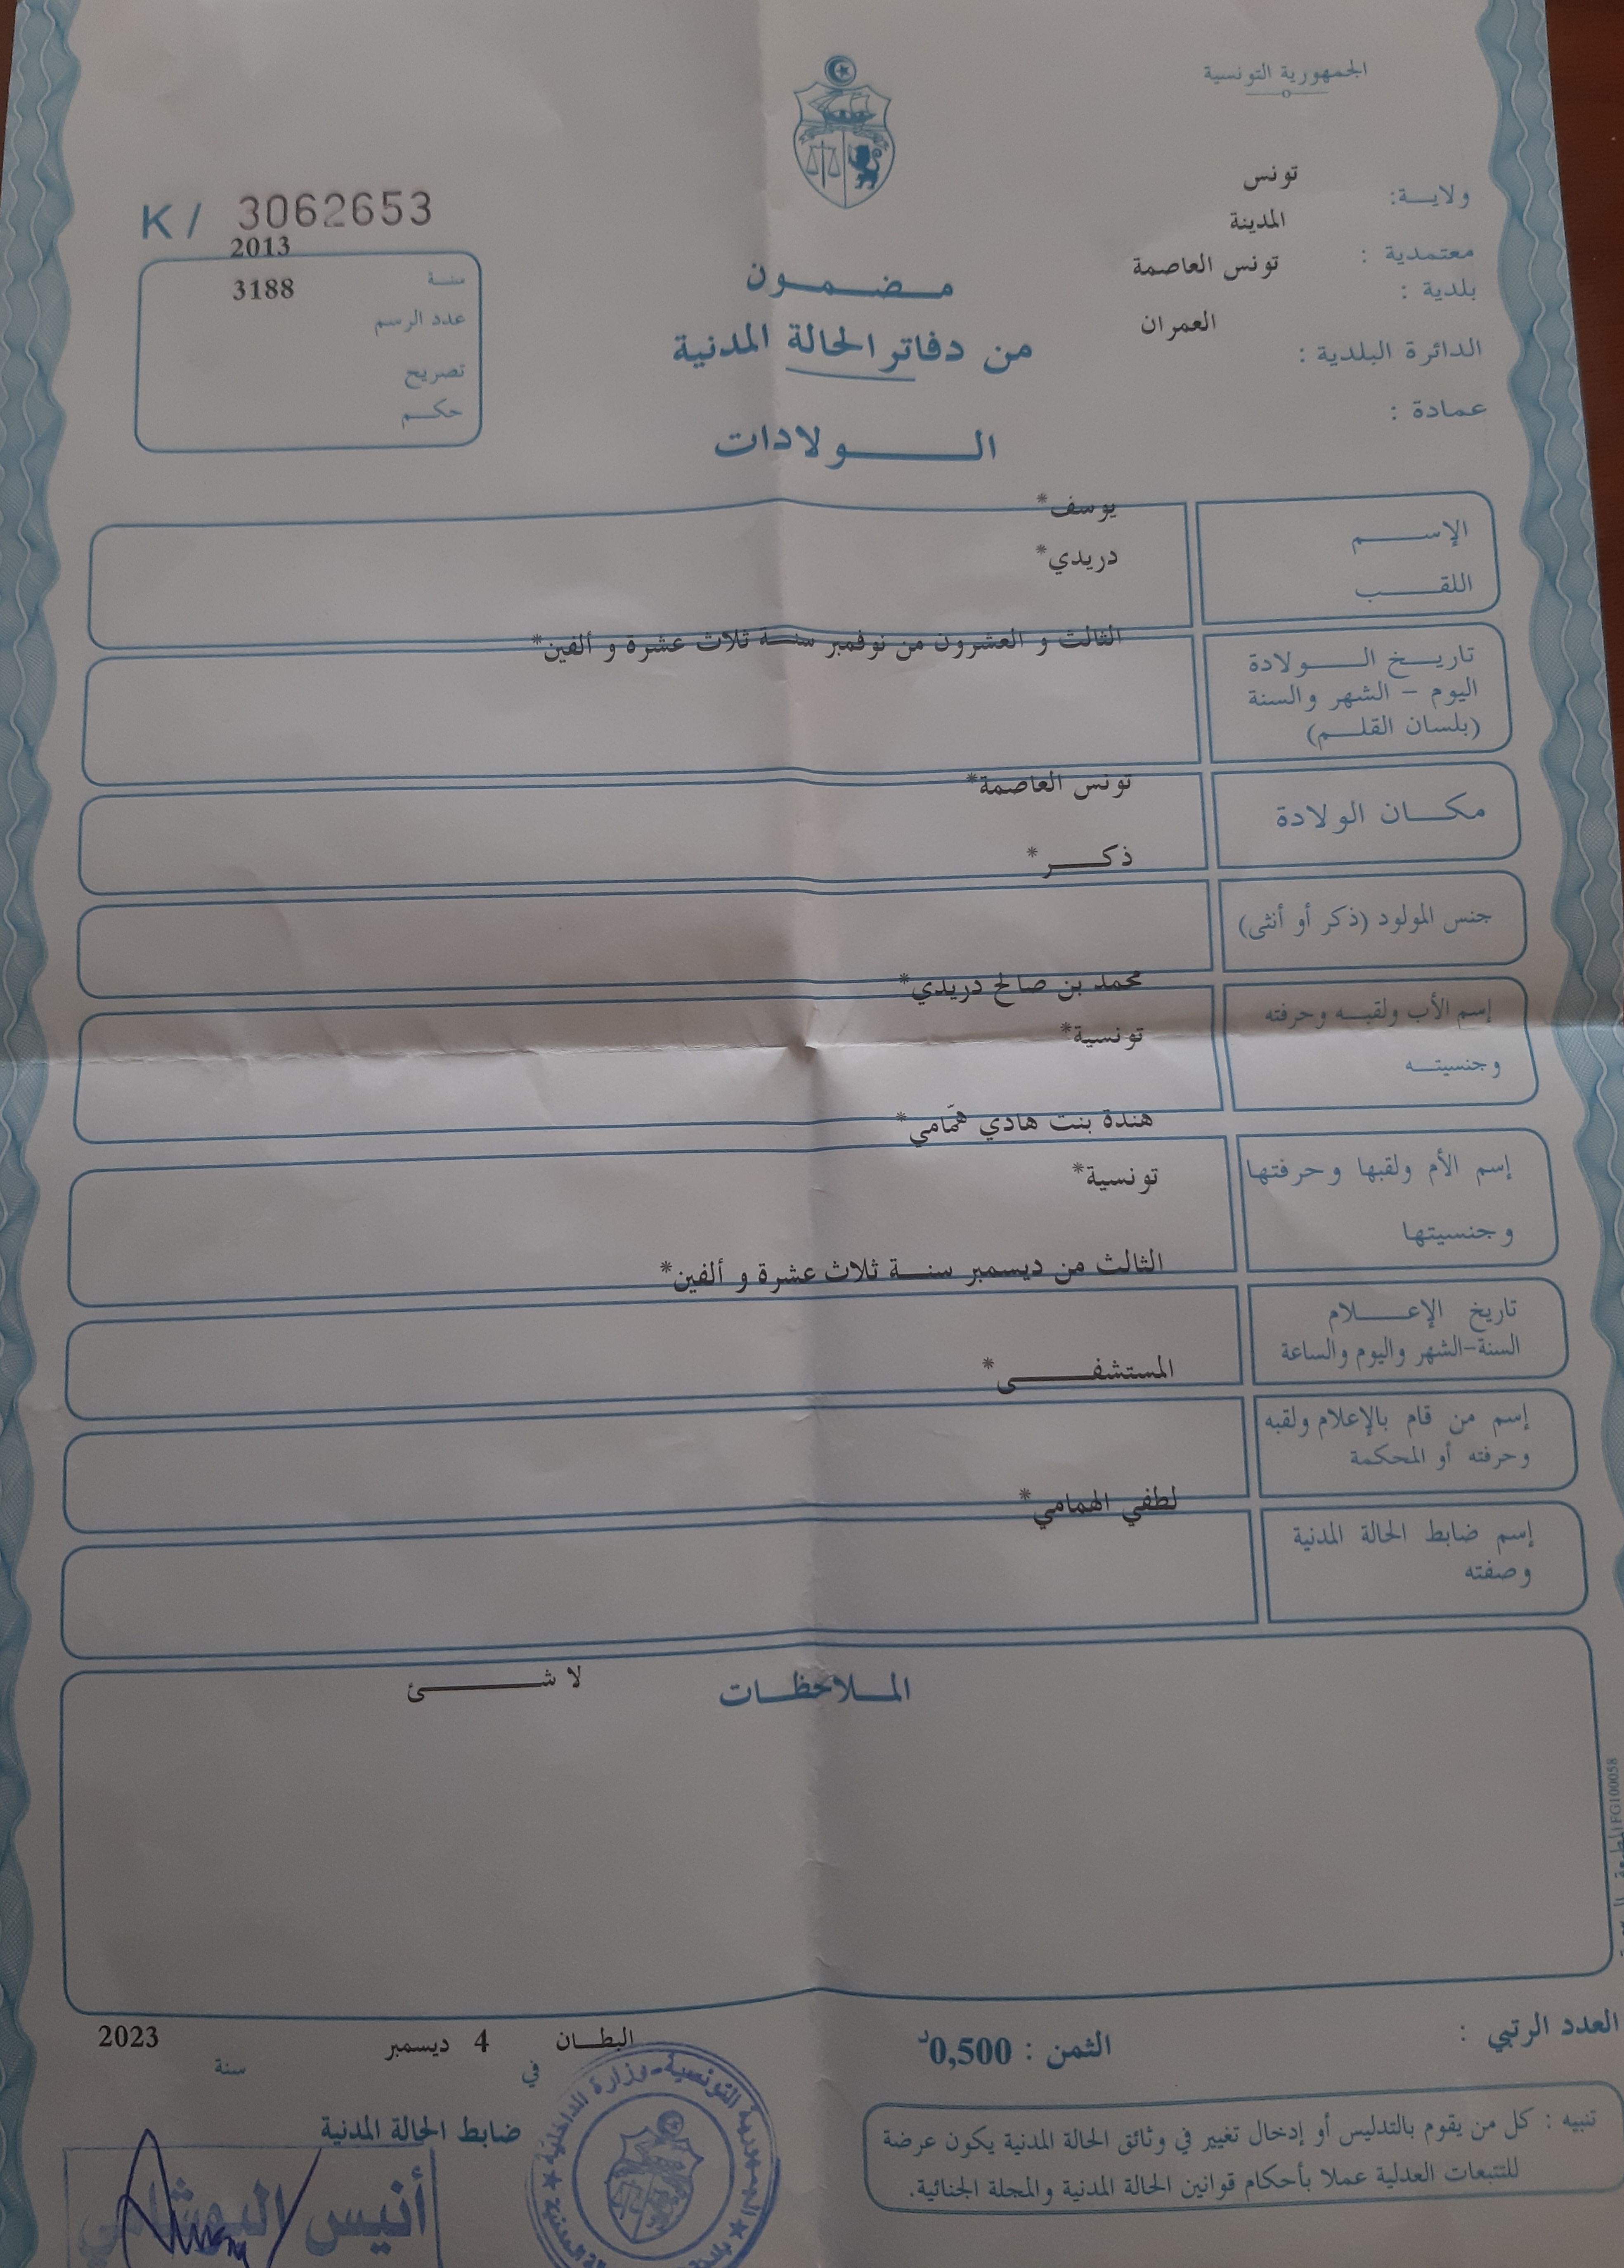 الجمهورية التونسية
ولايـــة: تونس
معتمدية : المدينة
بلدية : تونس العاصمة
الدائرة البلدية : العمران
عمادة :
K / 3062653
سنـة 2013
عدد الرسم 3188
تصريح
حكـم
مـضـمـون
من دفاتر الحالة المدنية
الـولادات
الإســـم يوسف*
اللقـــب دريدي*
تاريـخ الــولادة
اليوم - الشهر والسنة
(بلسان القلـم)
الثالث و العشرون من نوفمبر سنـة ثلاث عشرة و ألفين*
مكـــان الولادة تونس العاصمة*
جنس المولود (ذكر أو أنثى) ذكـــر*
إسم الأب ولقبـه وحرفته محمد بن صالح دريدي*
وجنسيتـه تونسية*
إسم الأم ولقبها وحرفتها هندة بنت هادي همّامي*
وجنسيتها تونسية*
تاريخ الإعـــلام
السنة-الشهر واليوم والساعة
الثالث من ديسمبر سنـة ثلاث عشرة و ألفين*
إسم من قام بالإعلام ولقبه
وحرفته أو المحكمة
المستشفـــى*
إسم ضابط الحالة المدنية
وصفته
لطفي الهمامي*
المـلاحظـات
لا شـــئ
العدد الرتبي :
الثمن : 0,500د
البطـان في 4 ديسمبر سنة 2023
ضابط الحالة المدنية
تنبيه : كل من يقوم بالتدليس أو إدخال تغيير في وثائق الحالة المدنية يكون عرضة
للتتبعات العدلية عملا بأحكام قوانين الحالة المدنية والمجلة الجنائية.
الجمهورية التونسية - وزارة الداخلية
أنيس
FG100058